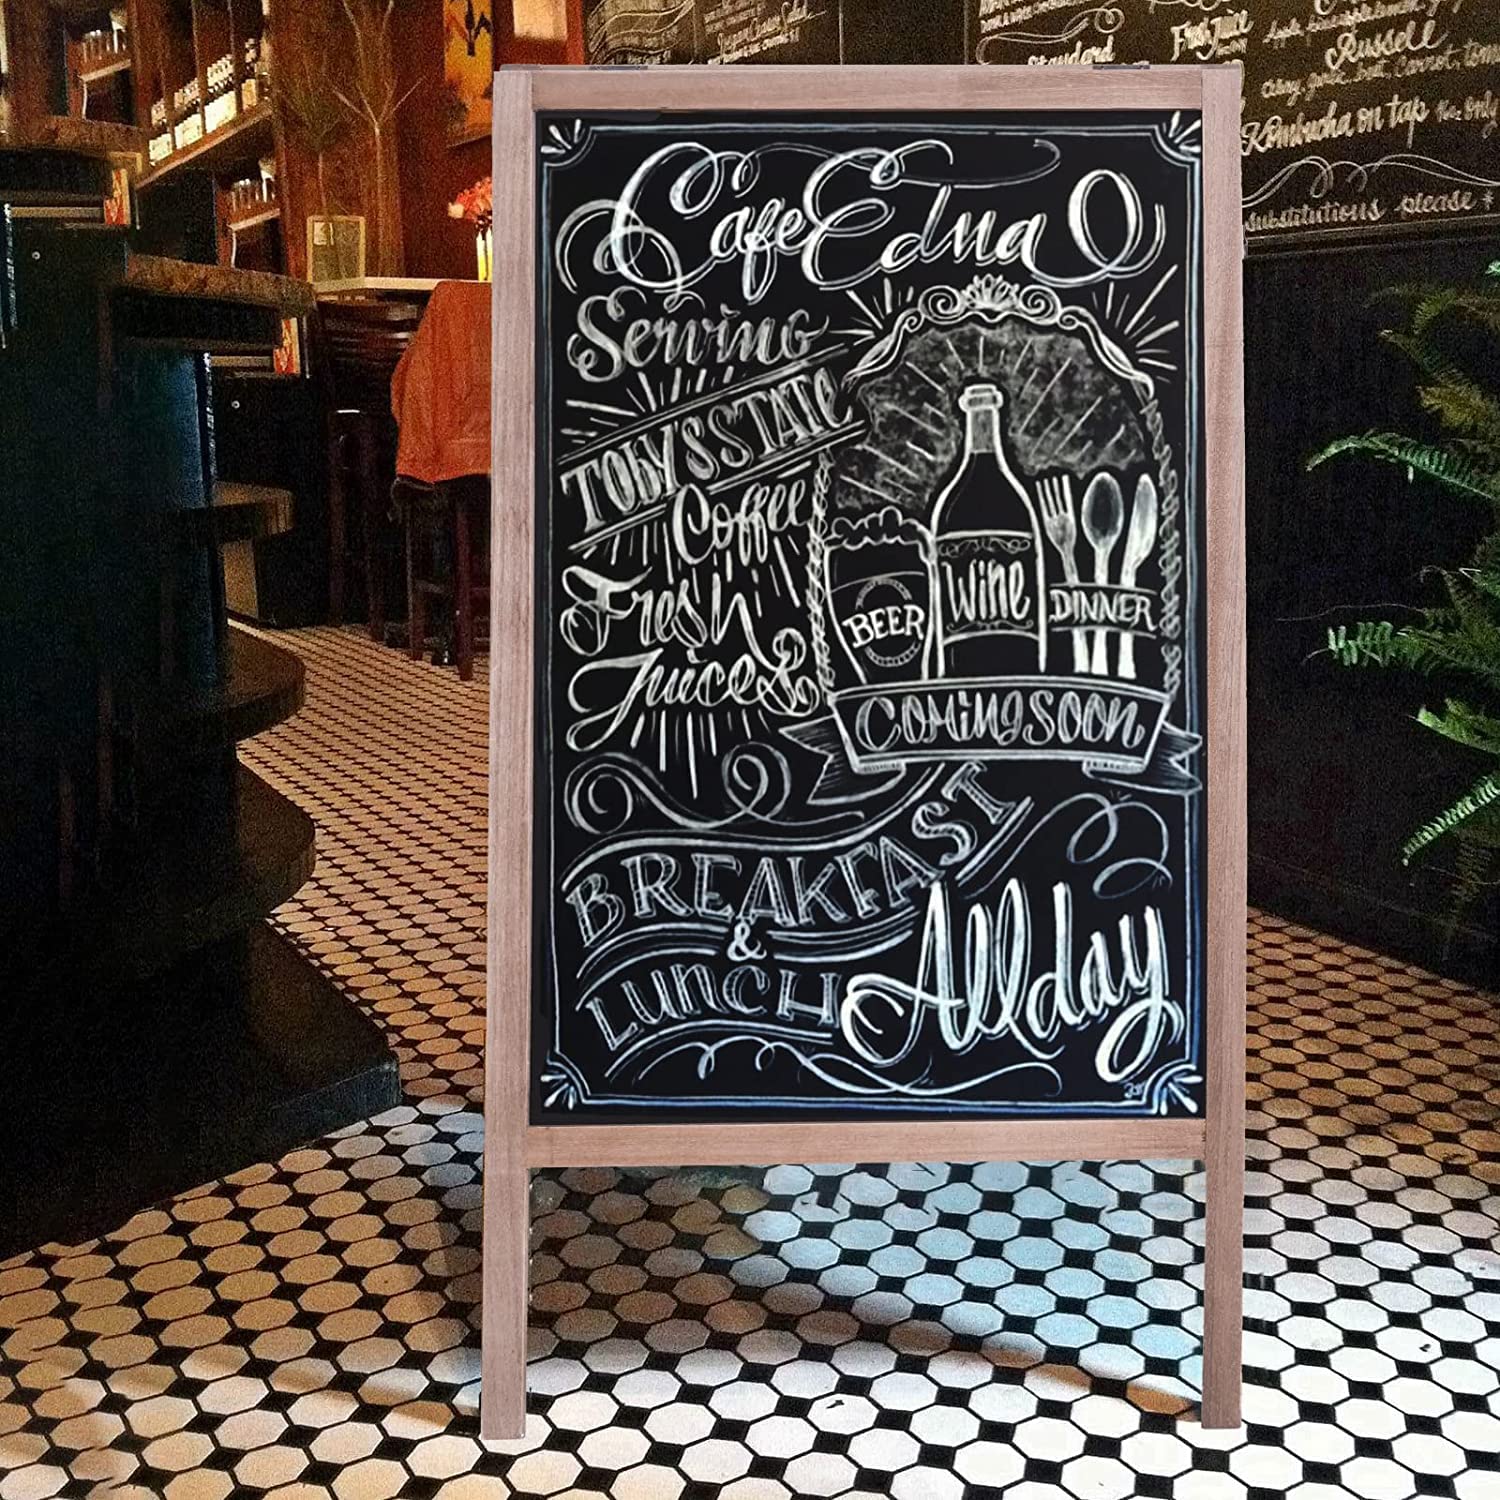 Cafe Edna
Serving
TOBYS STATE
Coffee
Fresh
Juices
BEER
Wine
DINNER
COMING SOON
BREAKFAST
&
LUNCH
All day
Standard
Fresh Juice
Russell
Kombucha on tap
substitutions please *